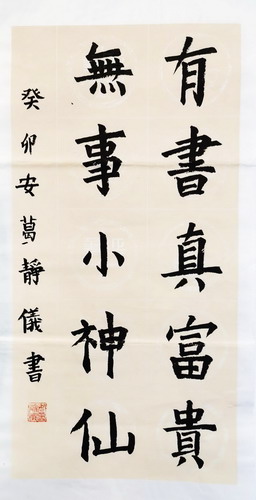 有書真富貴
無事小神仙
癸卯安葛靜儀書